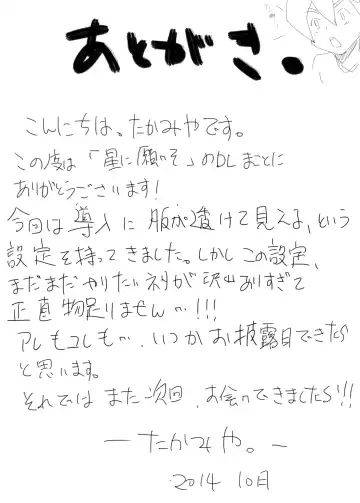 あとがき。
こんにちは、たかみやです。
この度は「星に願いを」のDLまことに
ありがとうございます!
今回は導入に服が透けて見える、という
設定を持ってきました。しかしこの設定、
まだまだやりたいネタが沢山ありすぎて
正直物足りません…!!!
アレもコレも…、いつかお披露目できたら
と思います。
それではまた次回、お会いできましたら!!
ーたかみや。ー
2014 10月